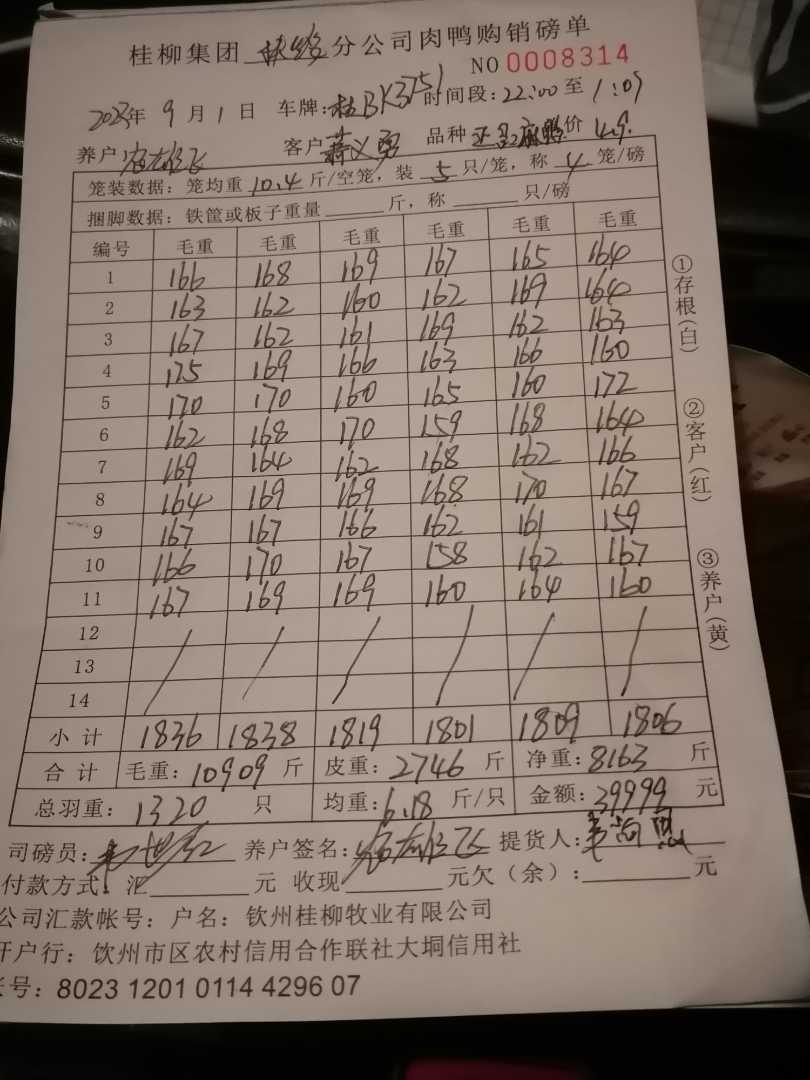 桂柳集团 分公司肉鸭购销磅单
NO 0008314
2023年 9 月 1 日 车牌:桂BK3751 时间段:22:00 至 1:09
养户 客户 蒋义勇 品种 价 4.9
笼装数据:笼均重 10.4 斤/空笼,装 5 只/笼,称 4 笼/磅
捆脚数据:铁筐或板子重量 斤,称 只/磅
编号 毛重 毛重 毛重 毛重 毛重 毛重
1 166 168 169 167 165 164
2 163 162 160 162 169 164
3 167 162 161 169 162 163
4 175 169 166 163 166 160
5 170 170 160 165 160 172
6 162 168 170 159 168 164
7 169 164 162 168 162 166
8 164 169 169 168 170 167
9 167 167 166 162 161 159
10 166 170 167 158 162 167
11 167 169 169 160 164 160
12
13
14
小 计 1836 1838 1819 1801 1809 1806
合 计 毛重:10909 斤 皮重:2746 斤 净重:8163 斤
总羽重:1320 只 均重:6.18 斤/只 金额:39999 元
司磅员: 养户签名: 提货人:
付款方式:汇 元 收现 元欠(余): 元
公司汇款帐号:户名:钦州桂柳牧业有限公司
开户行:钦州市区农村信用合作联社大垌信用社
号:8023 1201 0114 4296 07
①存根(白)
②客户(红)
③养户(黄)